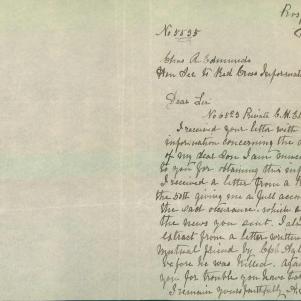 No 5535
Chas A Edmunds
Hon Sec to Red Cross Informa
Dear Sir
No 6523 Private C.H.
I received your letter with
information concerning the d
of my dear Son I am
to you for obtaining this inf
I received a letter from a
the 50th giving me a full acco
the sad occurance, which
the news you sent. I al
extract from a letter written
mutual friend by Cpl
before he was killed. aga
you for trouble you have ta
I remain yours faithfully